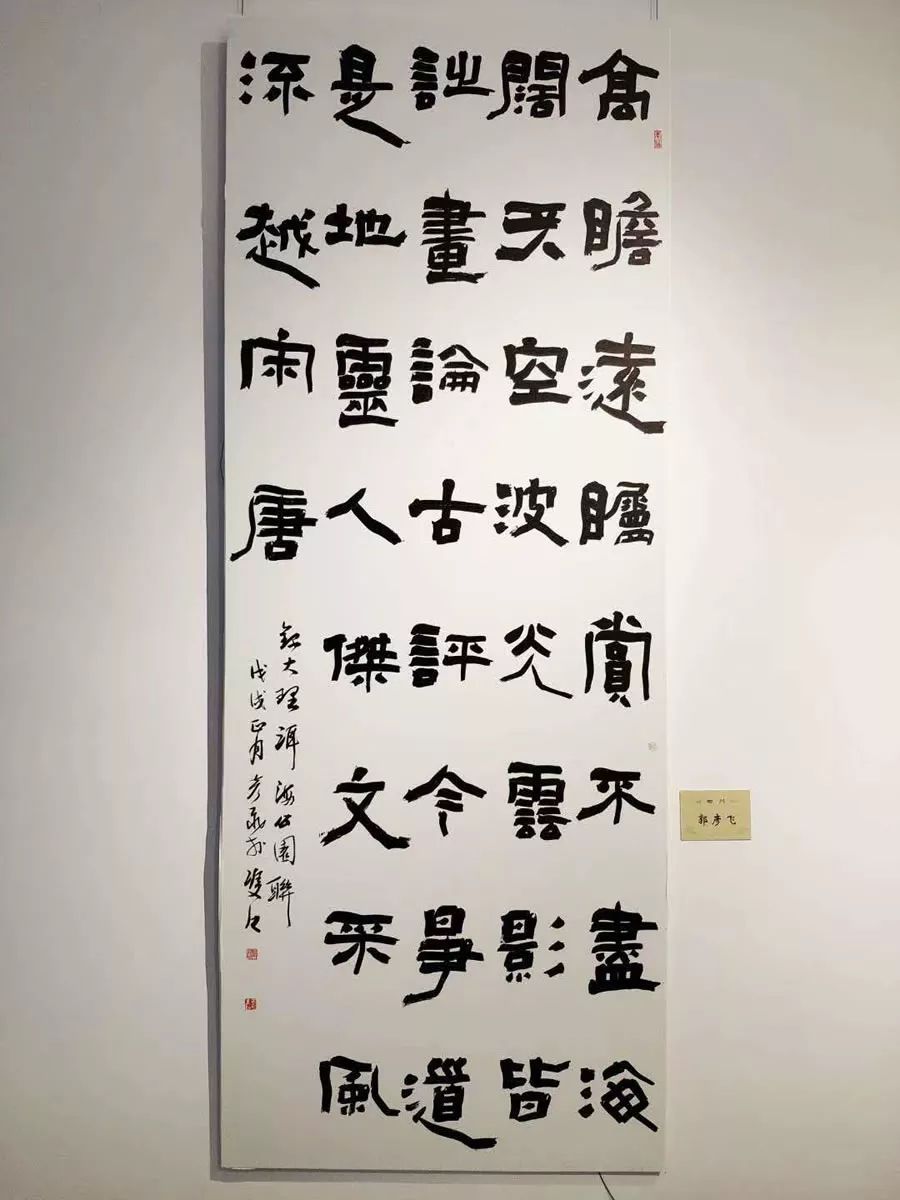 髙瞻遠矚賞不盡海
闊天空波光雲影皆
詩畫論古評今爭道
是地靈人傑文采風
流越宋唐
錄大理洱海公園聯
戊戌正月彦飛於雙
四川
郭彦飞